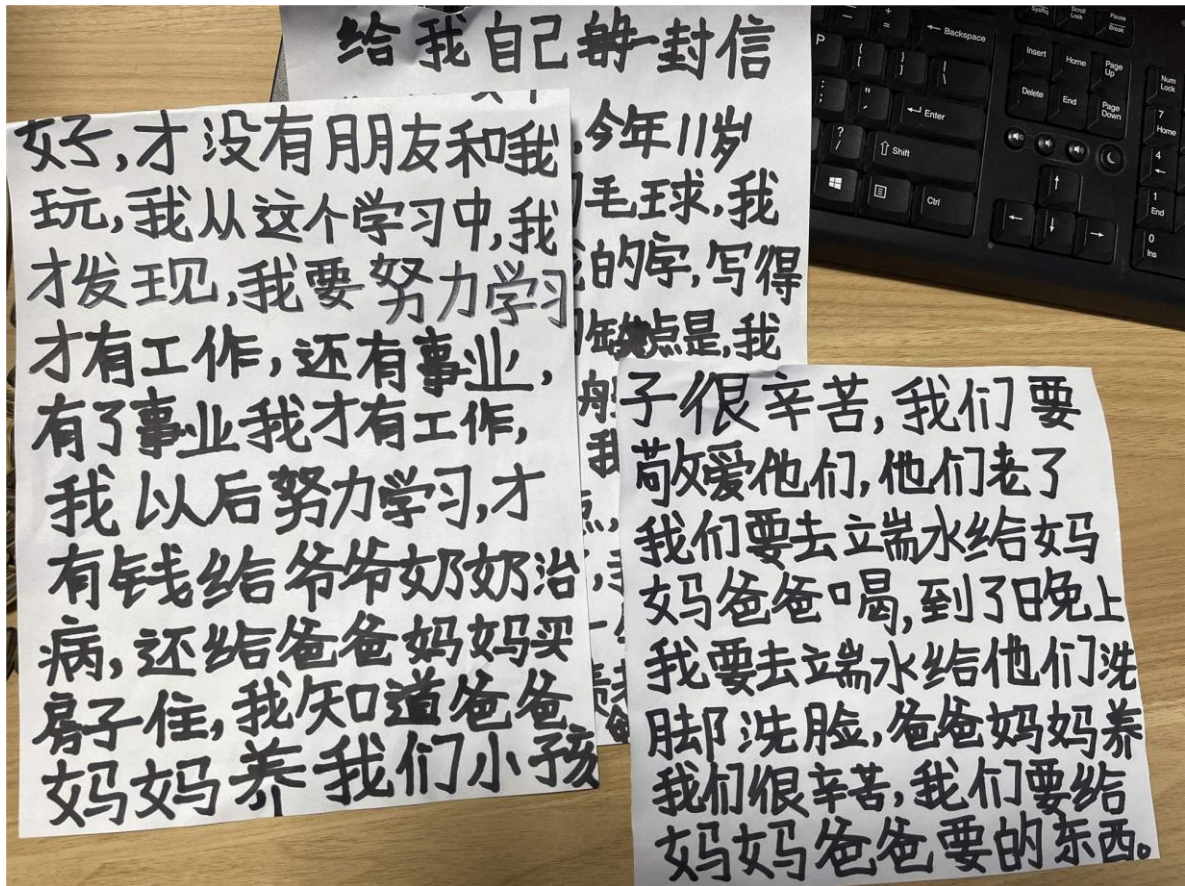 给我自己的一封信
,今年11岁
毛球,我
的字,写得
缺点是,我
好,才没有朋友和我
玩,我从这个学习中,我
才发现,我要努力学习
才有工作,还有事业,
有了事业我才有工作,
我以后努力学习,才
有钱给爷爷奶奶治
病,还给爸爸妈妈买
房子住,我知道爸爸
妈妈养我们小孩
子很辛苦,我们要
敬爱他们,他们老了
我们要去端水给妈
妈爸爸喝,到了日晚上
我要去端水给他们洗
脚洗脸,爸爸妈妈养
我们很辛苦,我们要给
妈妈爸爸要的东西。
P
{
[
}
]
|
\
← Backspace
:
;
"
'
← Enter
?
/
⇧ Shift
Ctrl
SysRq
Scroll
Lock
Pause
Break
Insert
Home
Page
Up
Delete
End
Page
Down
Num
Lock
7
Home
4
←
1
End
0
Ins
↑
←
↓
→